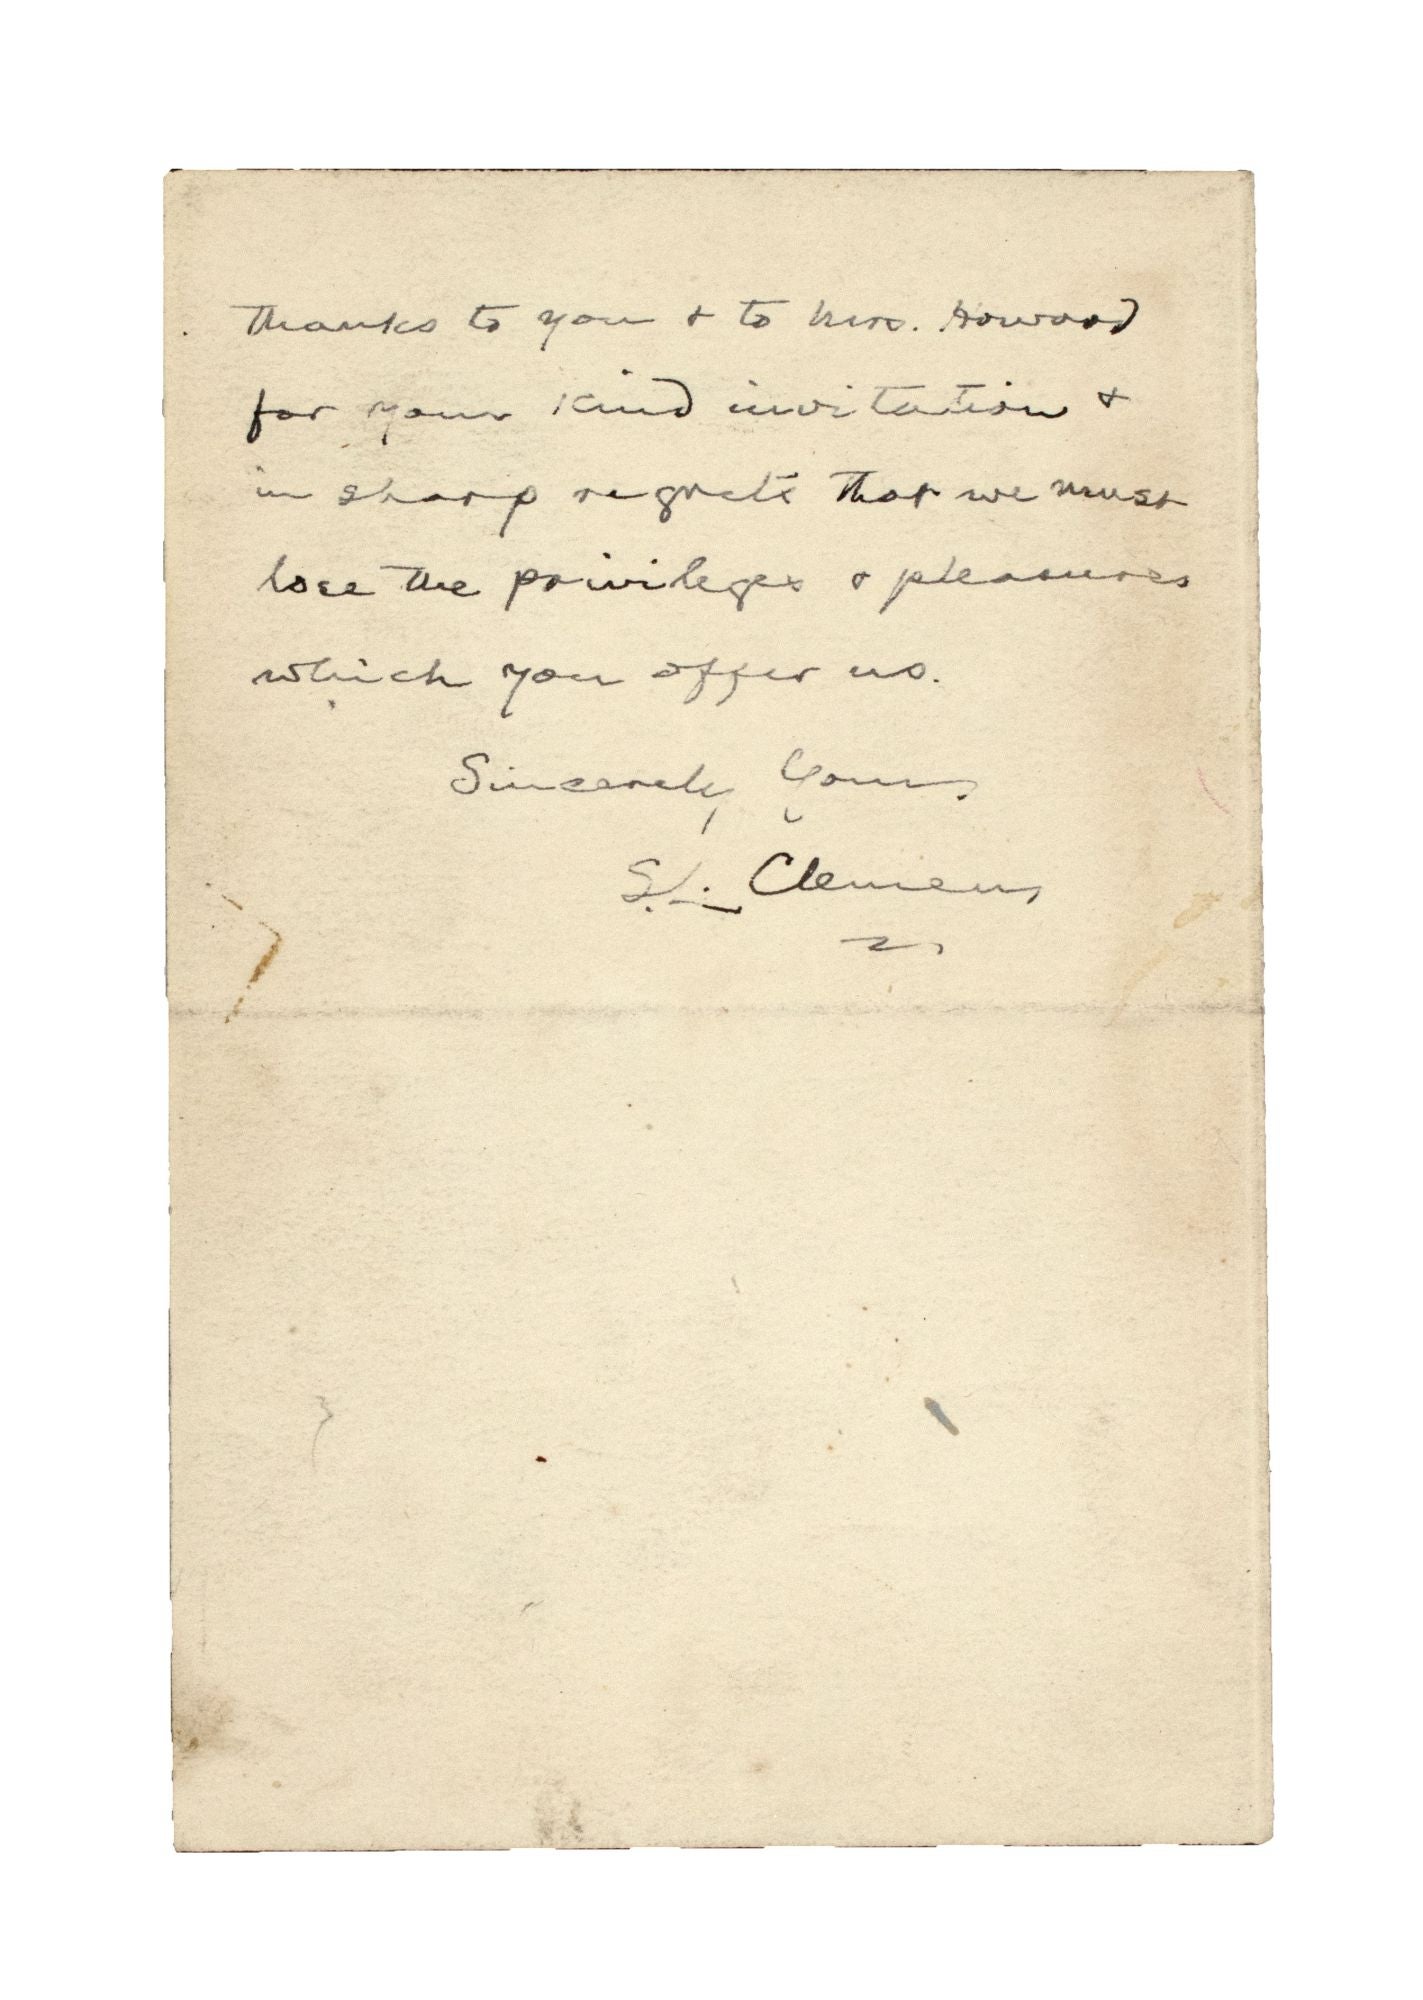 thanks to you & to Mrs. Howard
for your kind invitation &
in sharp regrets that we must
lose the privileges & pleasures
which you offer us.
Sincerely Yours
S. L. Clemens